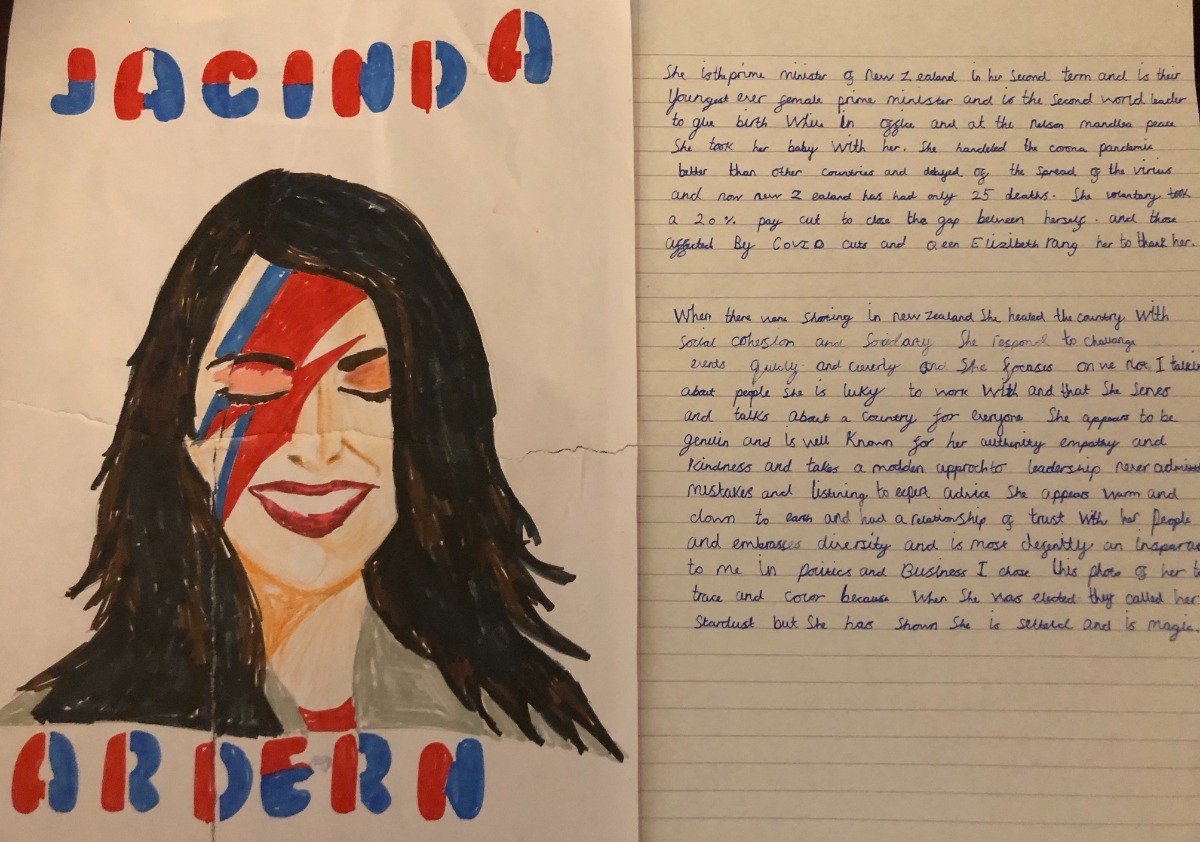 JACINDA
ARDERN
She is the prime minister of new Zealand in her Second term and is their
Youngest ever female prime minister and is the second world leader
to give birth While in office and at the nelson mandlea peace
She took her baby with her. She handeled the corona pandemic
better than other countries and delayed of the spread of the virius
and now new Zealand has had only 25 deaths. She voluntary took
a 20% pay cut to close the gap between herself. and those
affected By COVID cuts and Qeen Elizibeth rang her to thank her.
When there were shooting in new Zealand She healed the country with
Social cohesion and Soidary She respond to challange
events quickly and cleverly and She focuses on we not I talki
about people She is luky to work with and that She Serves
and talks about a country for everyone She appears to be
genuin and is well Known for her authenity empathy and
Kindness and takes a modden approch to leadership never admit
mistakes and listening to expert advice She appears warm and
down to earth and had a relationship of trust with her People
and embrasses diversity and is most defently an insparat
to me in Politics and Business I chose this photo of her t
trace and color because When She was elected they called her
Stardust but She has Shown She is Setteld and is magic.